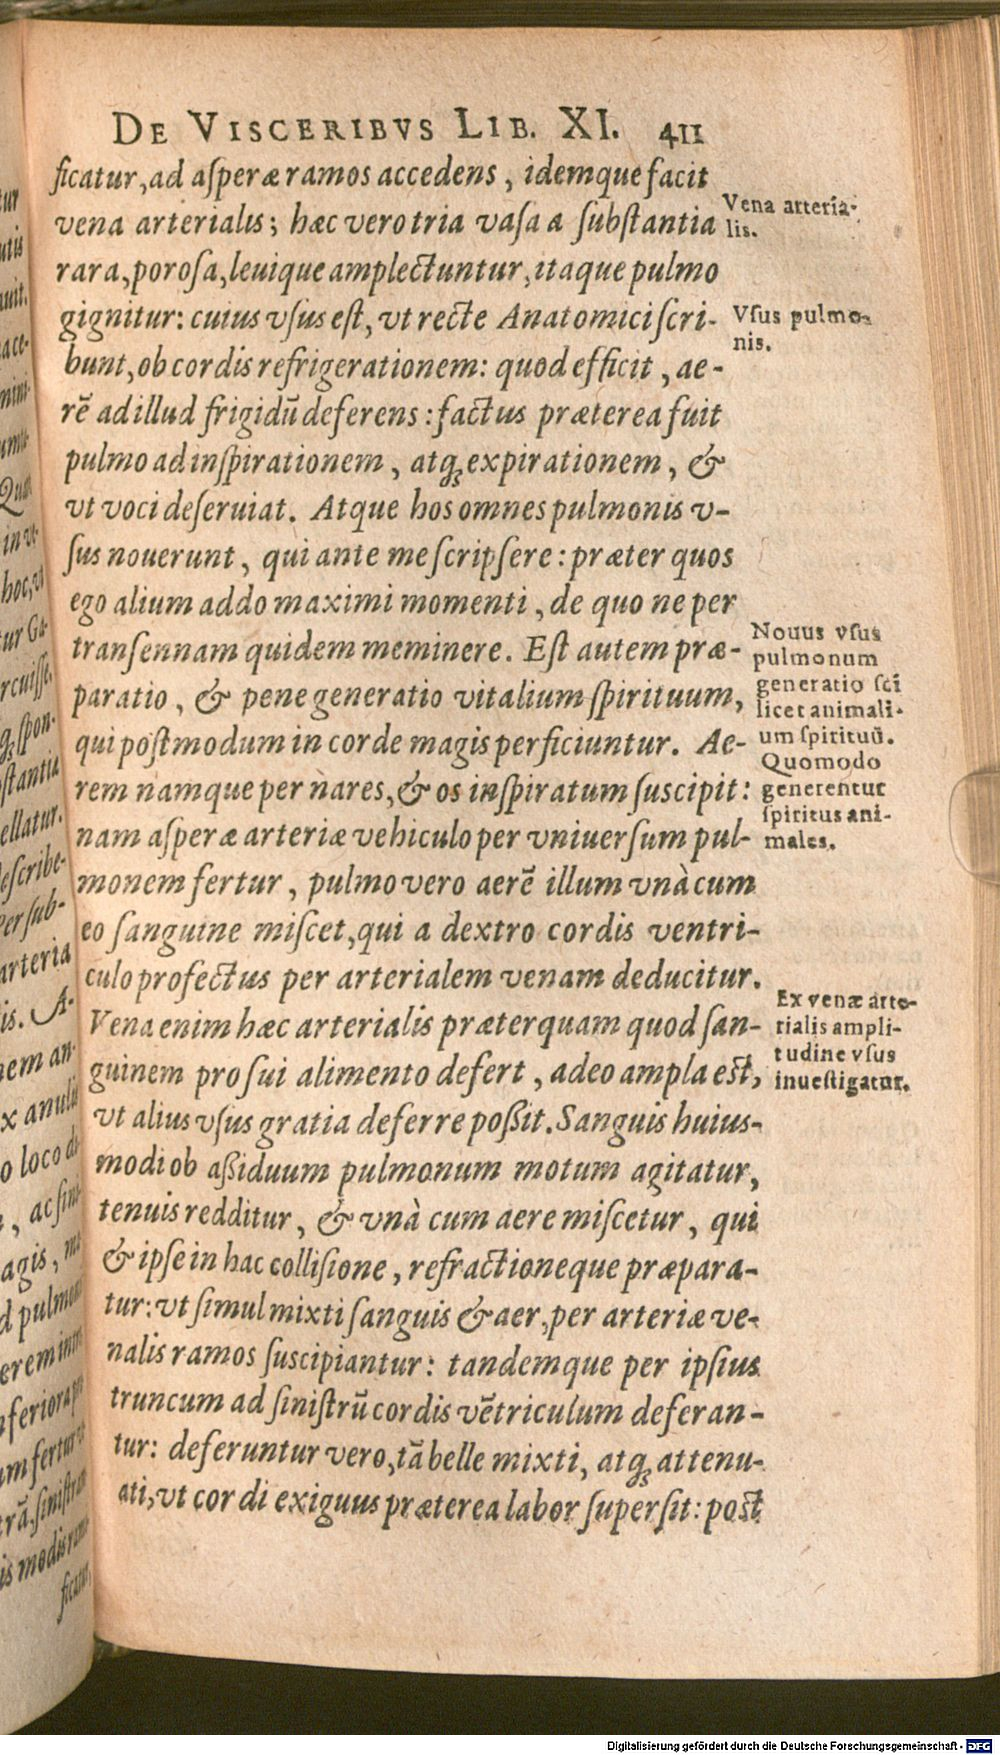 DE VISCERIBVS LIB. XI. 411
ficatur, ad aſperæ ramos accedens, idemque facit
vena arterialis; hæc vero tria vaſa a ſubſtantia
rara, poroſa, leuique amplectuntur, itaque pulmo
gignitur: cuius vſus eſt, vt recte Anatomici ſcri-
bunt, ob cordis refrigerationem: quod efficit, ae-
rē ad illud frigidū deferens: factus præterea fuit
pulmo ad inſpirationem, atqꝫ expirationem, &
vt voci deſeruiat. Atque hos omnes pulmonis v-
ſus nouerunt, qui ante me ſcripſere: præter quos
ego alium addo maximi momenti, de quo ne per
tranſennam quidem meminere. Eſt autem præ-
paratio, & pene generatio vitalium ſpirituum,
qui poſtmodum in corde magis perficiuntur. Ae-
rem namque per nares, & os inſpiratum ſuscipit:
nam aſperæ arteriæ vehiculo per vniuerſum pul-
monem fertur, pulmo vero aerē illum vnà cum
eo ſanguine miſcet, qui a dextro cordis ventri-
culo profectus per arterialem venam deducitur.
Vena enim hæc arterialis præterquam quod ſan-
guinem pro ſui alimento defert, adeo ampla eſt,
vt alius vſus gratia deferre poßit. Sanguis huius-
modi ob aßiduum pulmonum motum agitatur,
tenuis redditur, & vnà cum aere miſcetur, qui
& ipſe in hac colliſione, refractioneque præpara-
tur: vt ſimul mixti ſanguis & aer, per arteriæ ve-
nalis ramos ſuscipiantur: tandemque per ipſius
truncum ad ſiniſtrū cordis vētriculum deferan-
tur: deferuntur vero, tā belle mixti, atqꝫ attenu-
ati, vt cordi exiguus præterea labor ſuperſit: poſt
Vena arteria-
lis.
Vſus pulmo-
nis.
Nouus vſus
pulmonum
generatio ſci
licet animali-
um ſpirituū.
Quomodo
generentur
ſpiritus ani-
males.
Ex venæ arte-
rialis ampli-
tudine vſus
inueſtigatur.
Digitalisierung gefördert durch die Deutsche Forschungsgemeinschaft - DFG